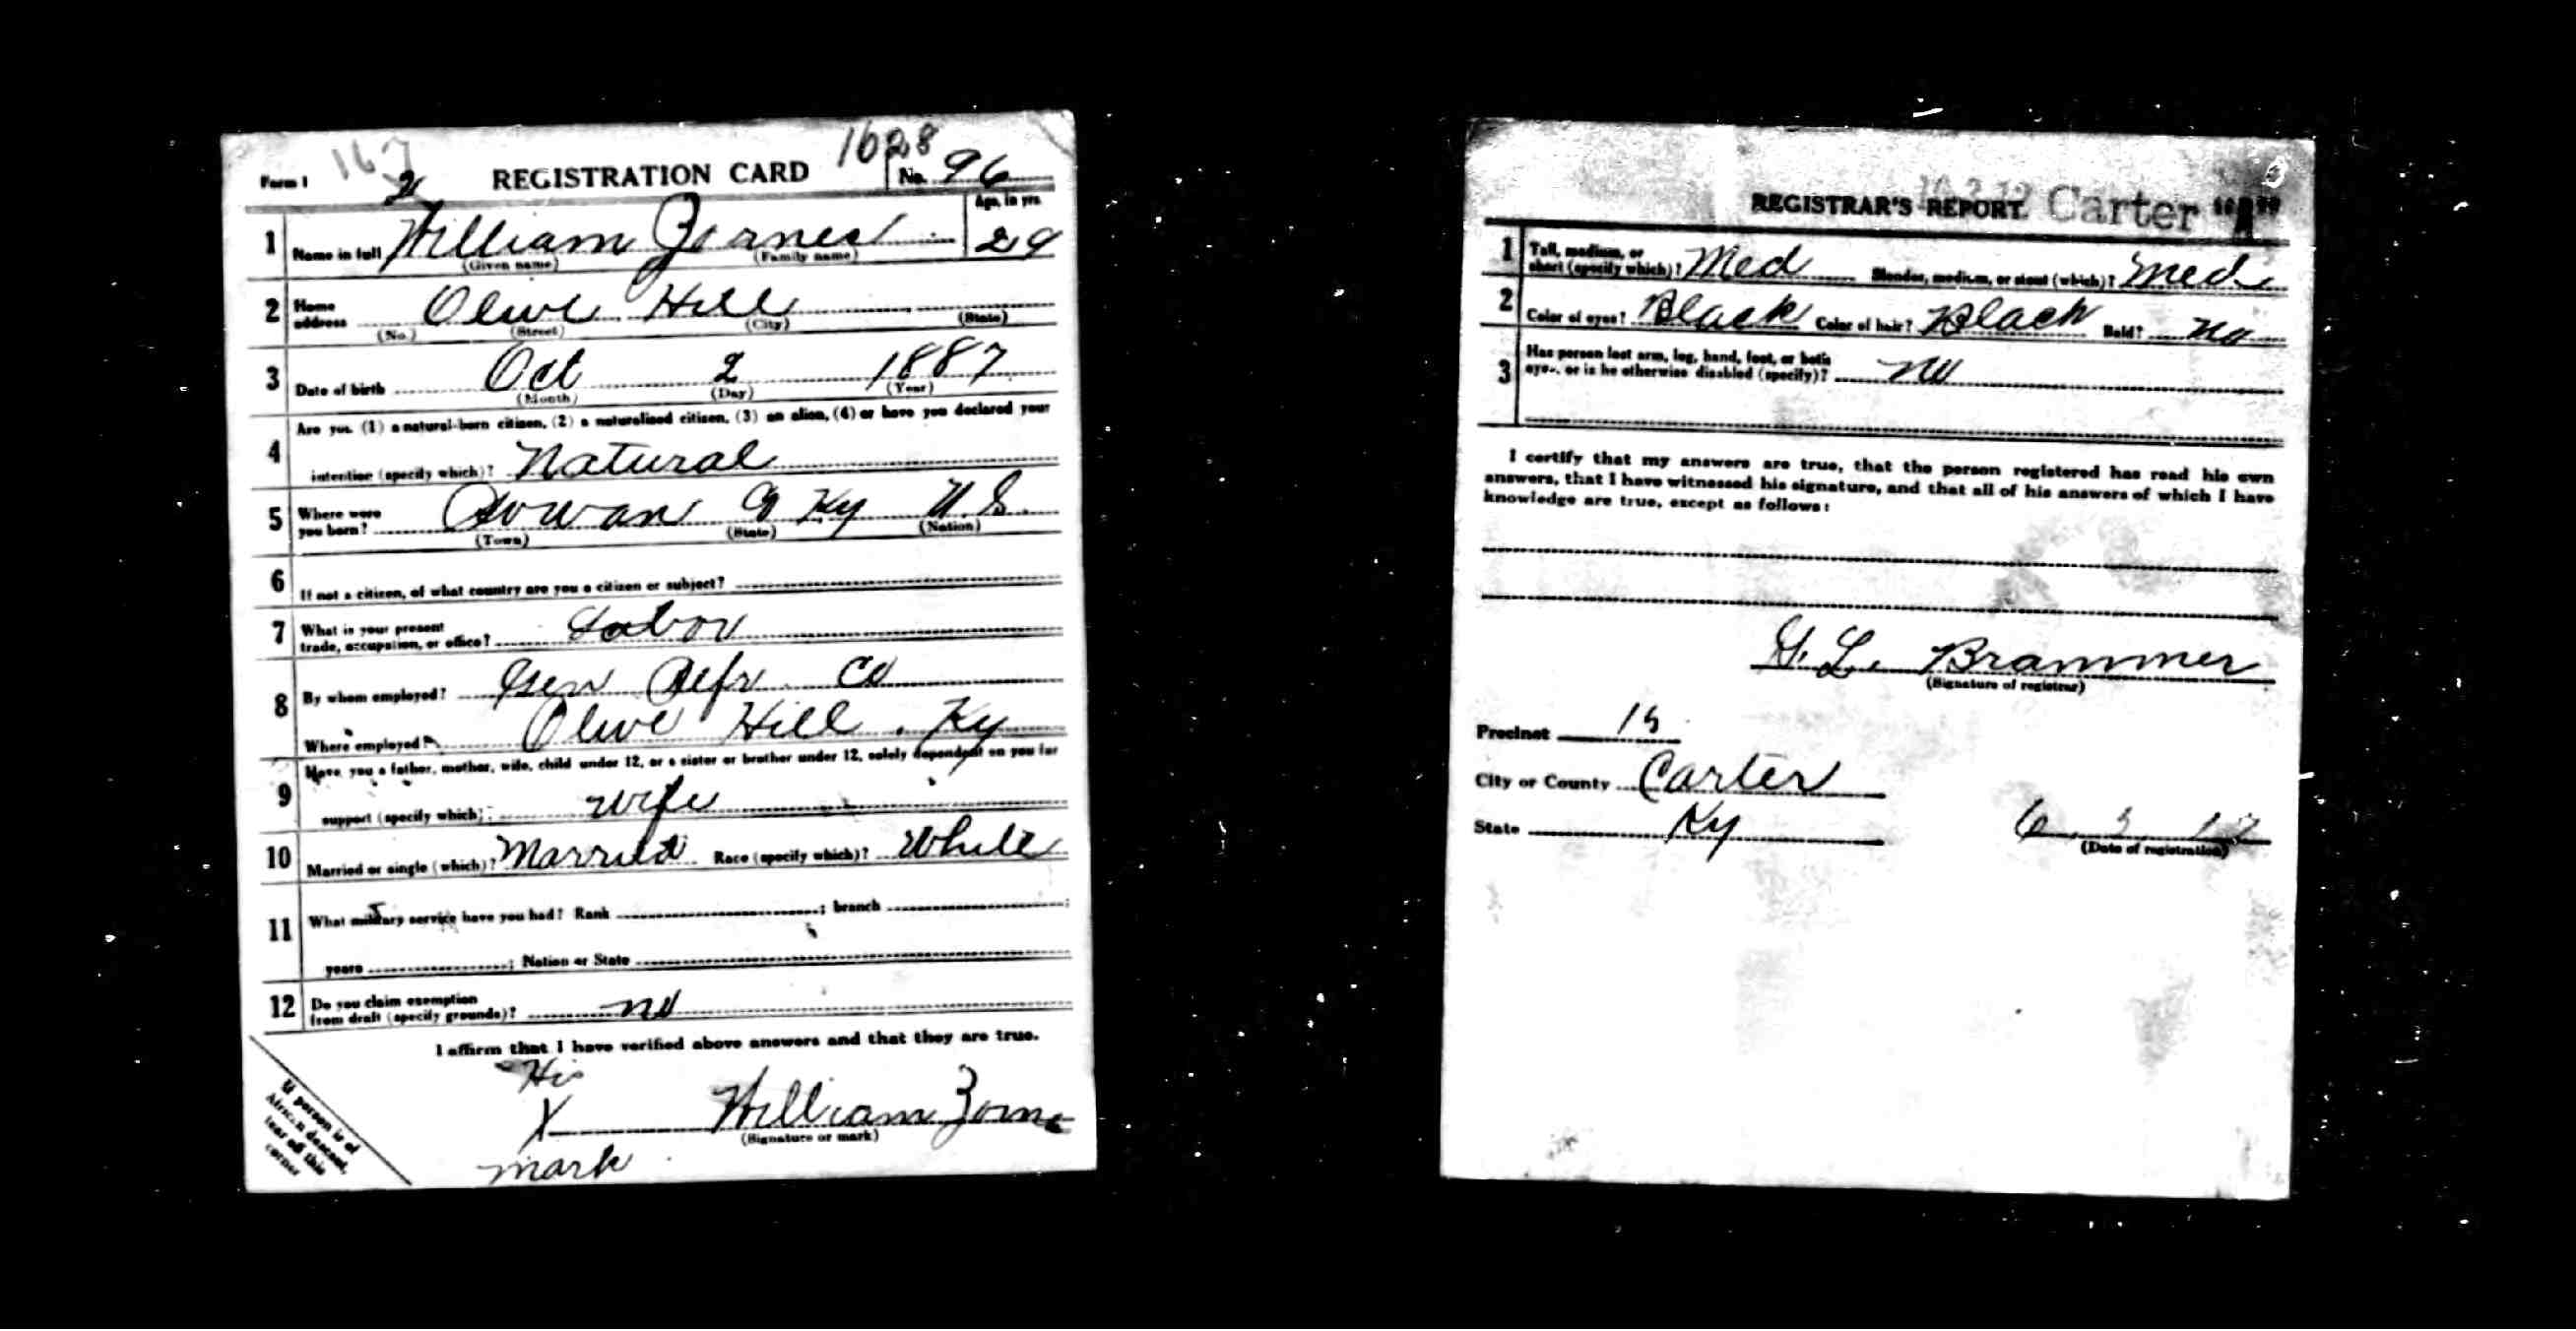 Form 1 167 REGISTRATION CARD 1628 No. 96
2
Age, in yrs
1 Name in full William Zornes 29
(Given name) (Family name)
2 Home address Olive Hill
(No.) (Street) (City) (State)
3 Date of birth Oct 2 1887
(Month) (Day) (Year)
4 Are you (1) a natural-born citizen, (2) a naturalized citizen, (3) an alien, (4) or have you declared your
intention (specify which)? Natural
5 Where were you born? Rowan Co Ky U.S.
(Town) (State) (Nation)
6 If not a citizen, of what country are you a citizen or subject?
7 What is your present trade, occupation, or office? Labor
8 By whom employed? Gen Refr. Co
Where employed? Olive Hill. Ky
9 Have you a father, mother, wife, child under 12, or a sister or brother under 12, solely dependent on you for
support (specify which)? wife
10 Married or single (which)? Married Race (specify which)? White
11 What military service have you had? Rank ; branch ;
years ; Nation or State
12 Do you claim exemption from draft (specify grounds)? no
I affirm that I have verified above answers and that they are true.
His
X William Zorne
(Signature or mark)
mark
If person is of
African descent,
tear off this
corner
REGISTRAR'S REPORT Carter "A"
1 Tall, medium, or short (specify which)? Med Slender, medium, or stout (which)? Med
2 Color of eyes? Black Color of hair? Black Bald? No
3 Has person lost arm, leg, hand, foot, or both
eyes, or is he otherwise disabled (specify)? no
I certify that my answers are true, that the person registered has read his own
answers, that I have witnessed his signature, and that all of his answers of which I have
knowledge are true, except as follows:
G. L. Brammer
(Signature of registrar)
Precinct 15
City or County Carter
State Ky 6 5 17
(Date of registration)